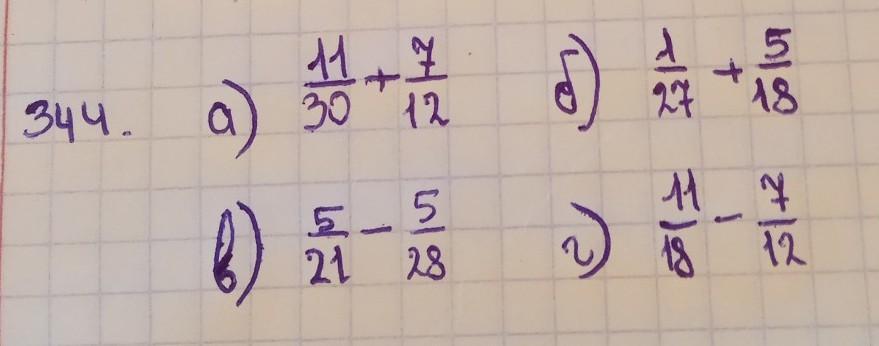 344. а) 11/30 + 7/12 б) 1/27 + 5/18
в) 5/21 - 5/28 г) 11/18 - 7/12